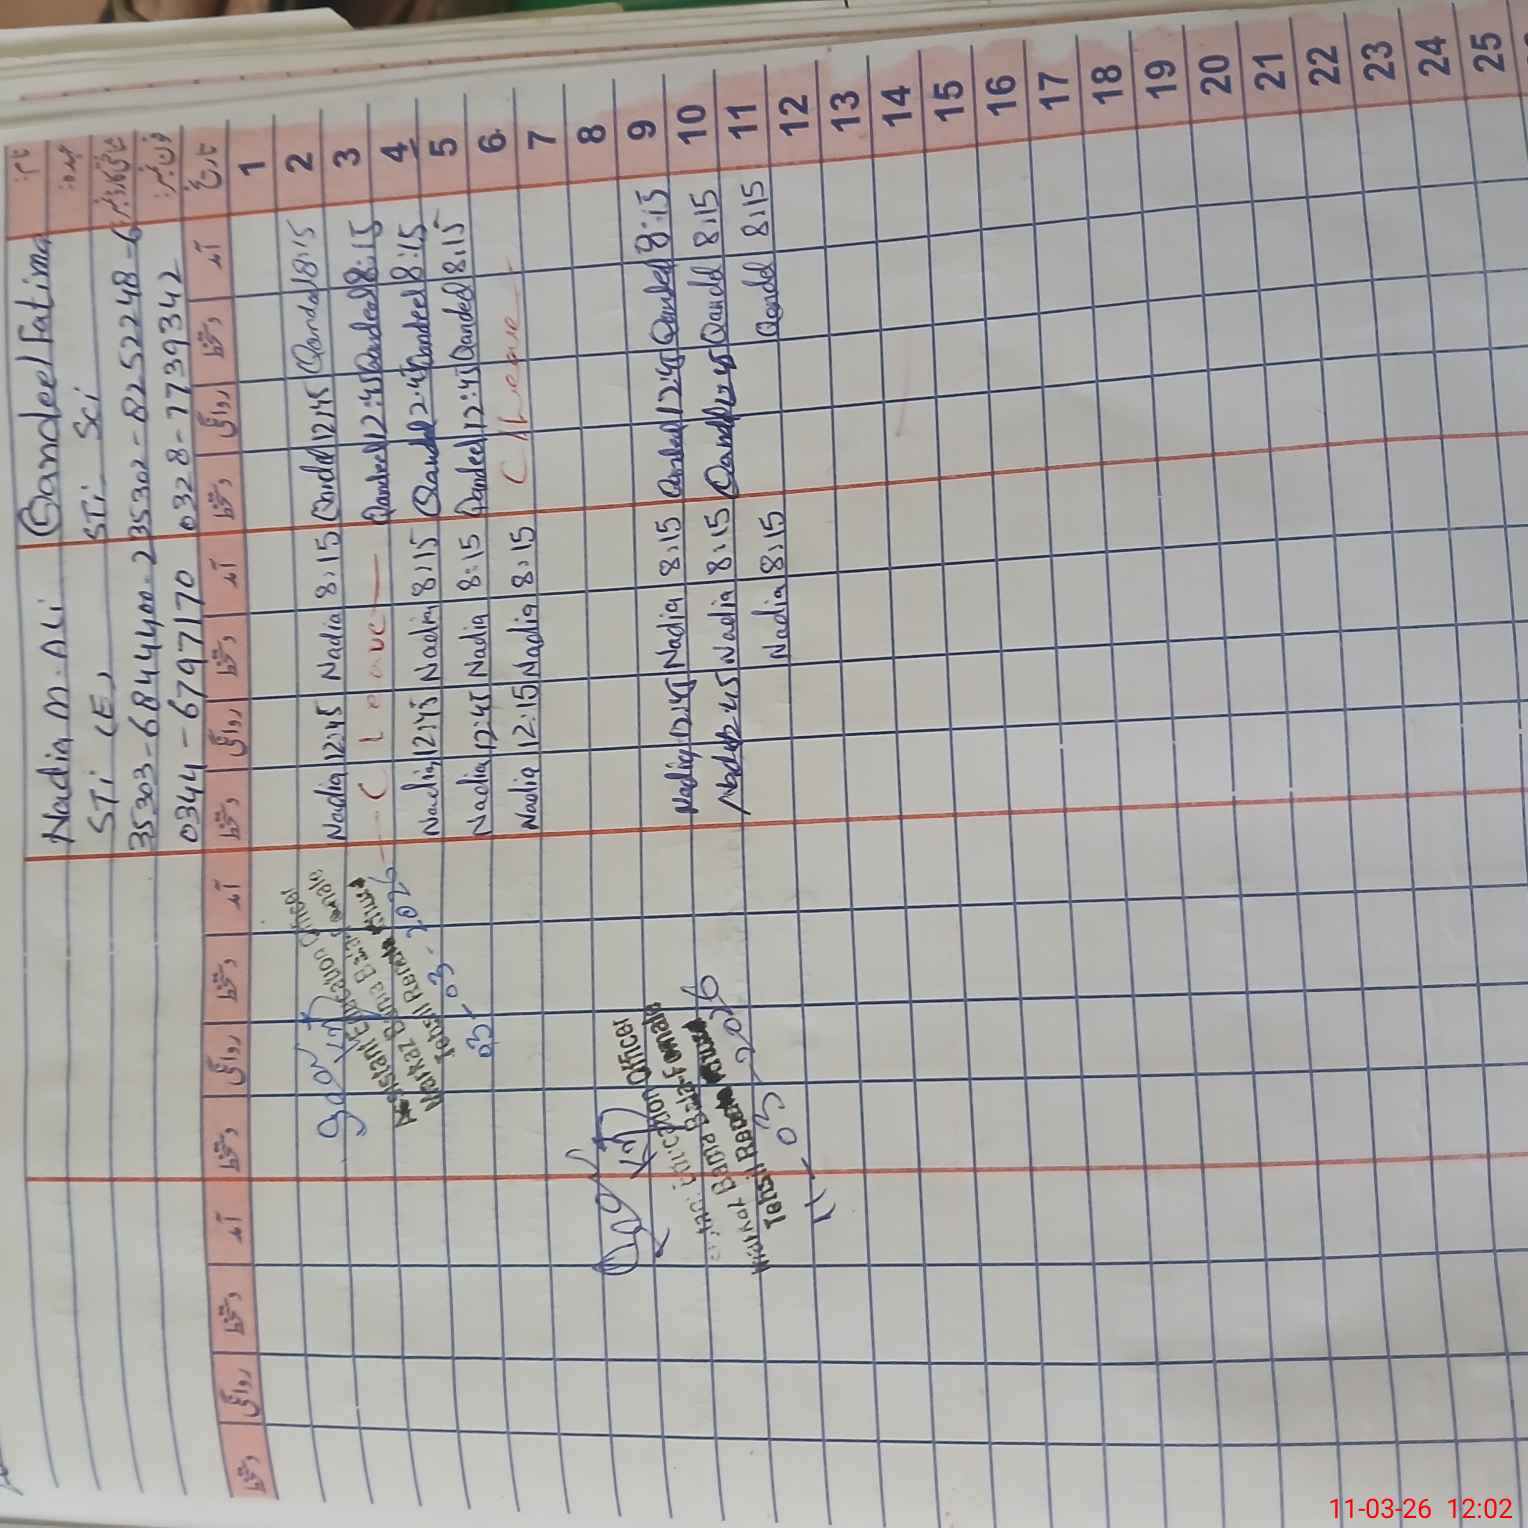 Nadia M. Ali Qandeel Fatima نام:
STi (E) STi Sci عہدہ:
35303-6844400-2 35302-8252248-6 شناختی کارڈ نمبر
0344-6797170 0328-7739342 فون نمبر:
دستخط روانگی دستخط آمد دستخط روانگی دستخط آمد دستخط روانگی دستخط آمد دستخط روانگی دستخط آمد تاریخ
1
Nadia 12:45 Nadia 8:15 Qandeel 12:45 Qandeel 8:15 2
C Leave Qandeel 12:45 Qandeel 8:15 3
Nadia 12:45 Nadia 8:15 Qandeel 12:45 Qandeel 8:15 4
Nadia 12:45 Nadia 8:15 Qandeel 12:45 Qandeel 8:15 5
Nadia 12:15 Nadia 8:15 C/Leave 6
7
8
Nadia 12:45 Nadia 8:15 Qandeel 12:45 Qandeel 8:15 9
Nadia 12:45 Nadia 8:15 Qandeel 12:45 Qandeel 8:15 10
Nadia 8:15 Qandeel 8:15 11
12
13
14
15
16
17
18
19
20
21
22
23
24
25
Assistant Education Officer
Markaz Bama Bala Female
Tehsil Renala Khurd
03-03-2026
Education Officer
Markaz Bama Bala Female
Tehsil Renala Khurd
11-03-2026
11-03-26 12:02